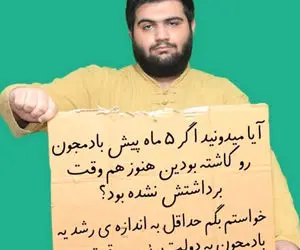 آیا میدونید اگر ۵ ماه پیش بادمجون
رو کاشته بودین هنوز هم وقت
برداشتش نشده بود؟
خواستم بگم حداقل به اندازه ی رشد یه
بادمجون به دولت